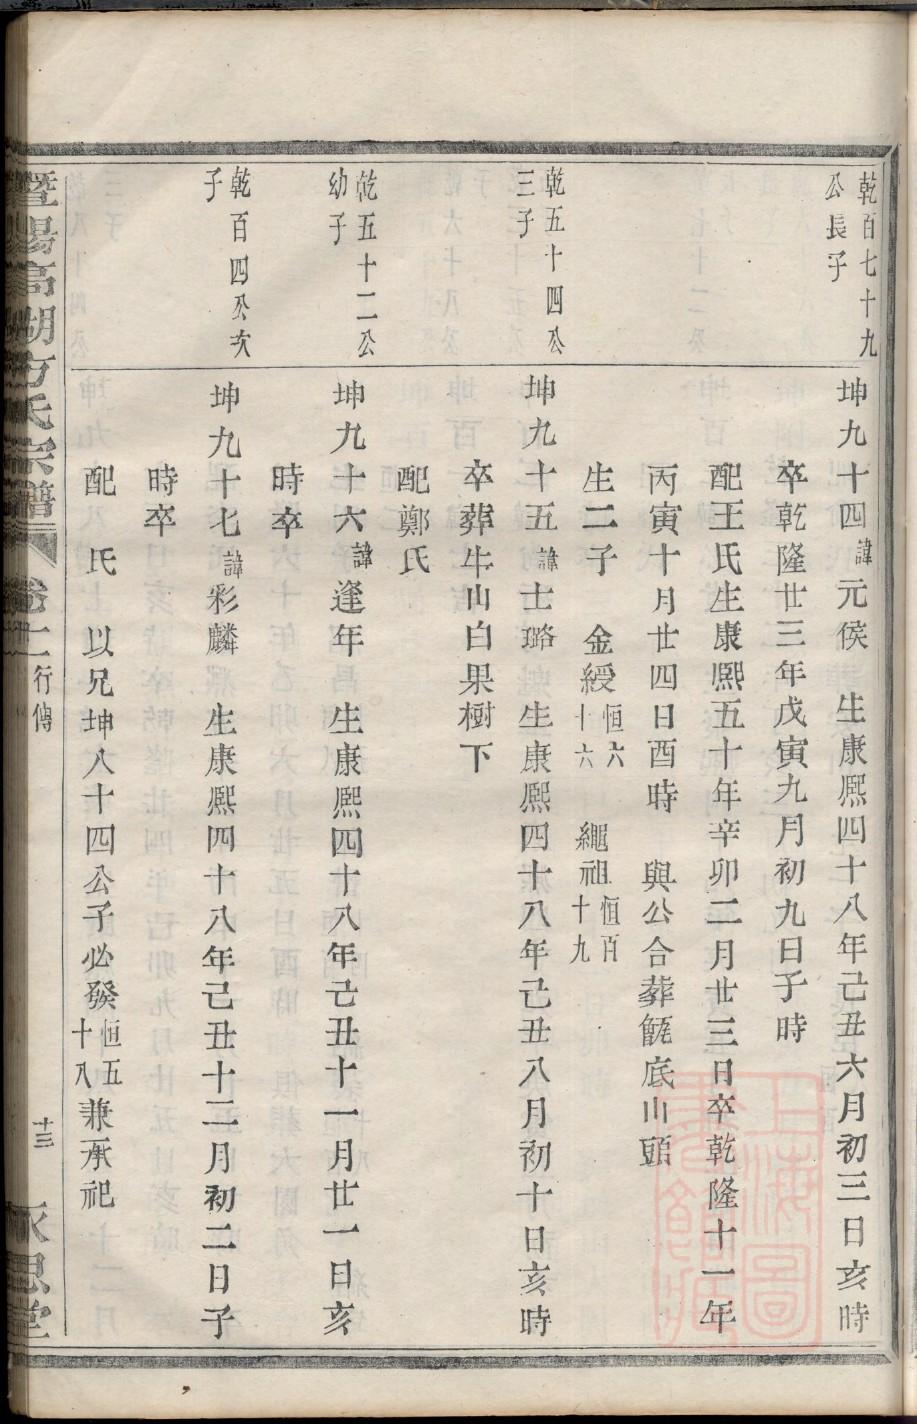 乾百七十九
公長子
坤九十四諱元侯 生康熙四十八年己丑六月初三日亥時
卒乾隆廿三年戊寅九月初九日子時
配王氏生康熙五十年辛卯二月廿三日卒乾隆十一年
丙寅十月廿四日酉時 與公合葬甑底山頭
生二子 金綬恒六十六 繩祖恒百十九
乾五十四公
三子
坤九十五諱士璐生康熙四十八年己丑八月初十日亥時
卒葬牛山白果樹下
配鄭氏
乾五十二公
幼子
坤九十六諱逢年 生康熙四十八年己丑十一月廿一日亥
時卒
乾百四公次
子
坤九十七諱彩麟 生康熙四十八年己丑十二月初二日子
時卒
配 氏 以兄坤八十四公子必發恒五十八兼承祀
暨陽高湖方氏宗譜 卷十二 行傳 十三 永思堂
上海圖
書館